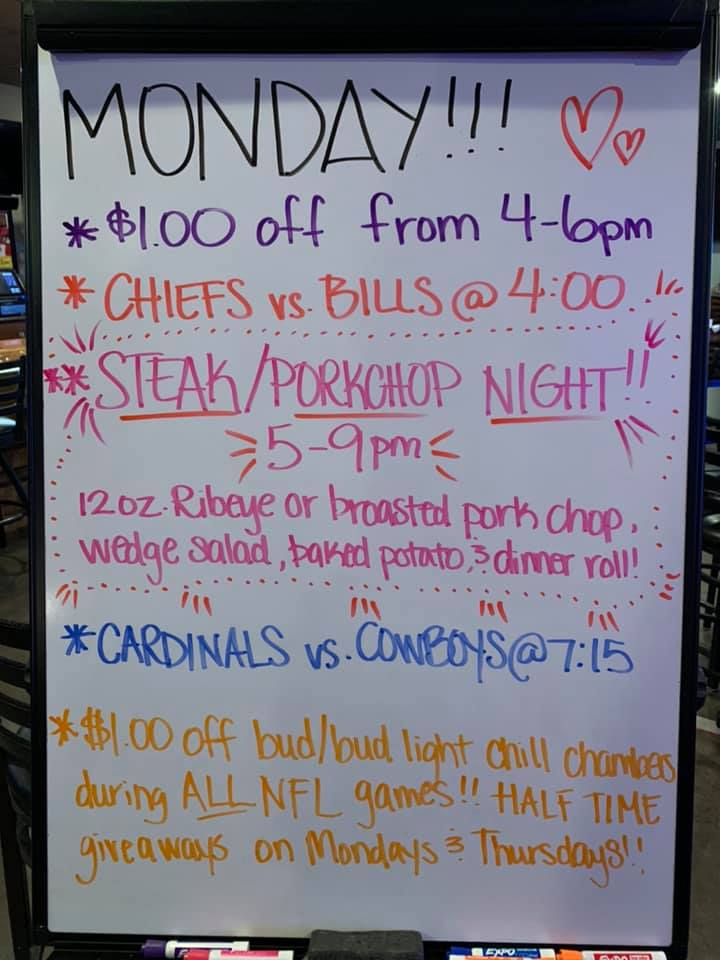 MONDAY!!!
*$1.00 off from 4-6pm
*CHIEFS vs. BILLS @ 4:00
**STEAK/PORKCHOP NIGHT!!
5-9pm
12oz. Ribeye or broasted pork chop,
wedge salad, baked potato, & dinner roll!
*CARDINALS vs. COWBOYS@7:15
*$1.00 off bud/bud light chill chambers
during ALL NFL games!! HALF TIME
giveaways on Mondays & Thursdays!!
EXPO